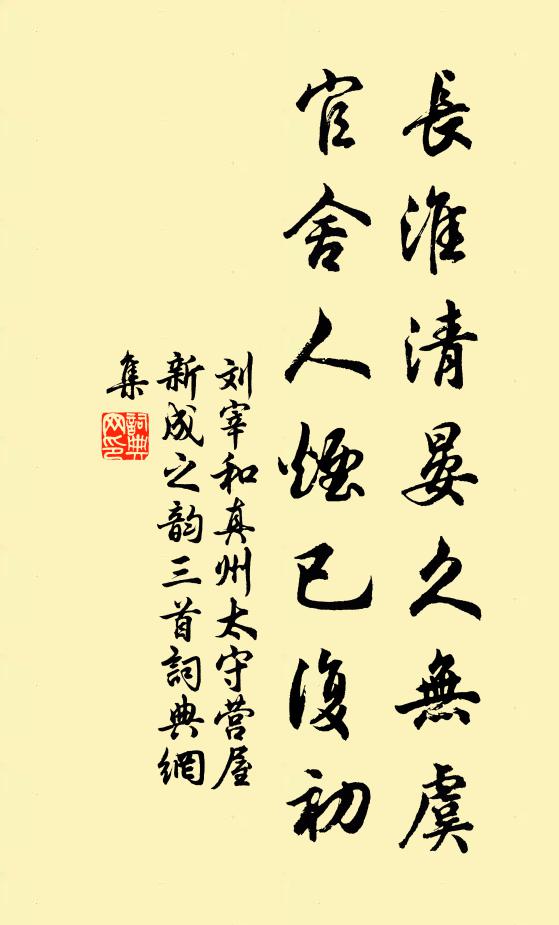 長淮清晏久無虞
官舍人煙已復初
刘宰和真州太守营屋
新成之韵三首詞典網
集
詞典
网印